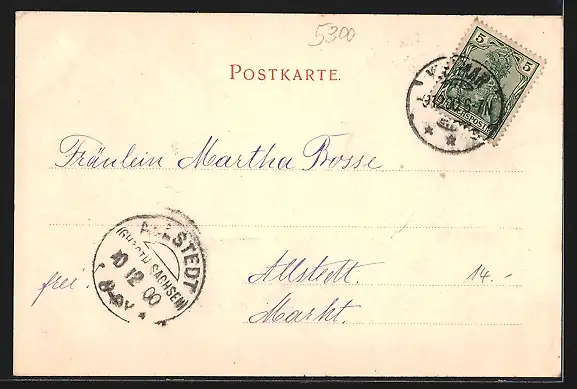 5300
POSTKARTE.
5
5
WEIMAR
-9.12.00.6-7N
Fräulein Martha Bosse
ALLSTEDT
(GHZGTH. SACHSEN)
10 12 00
8-9V
frei.
Allstedt.
14.-
Markt.